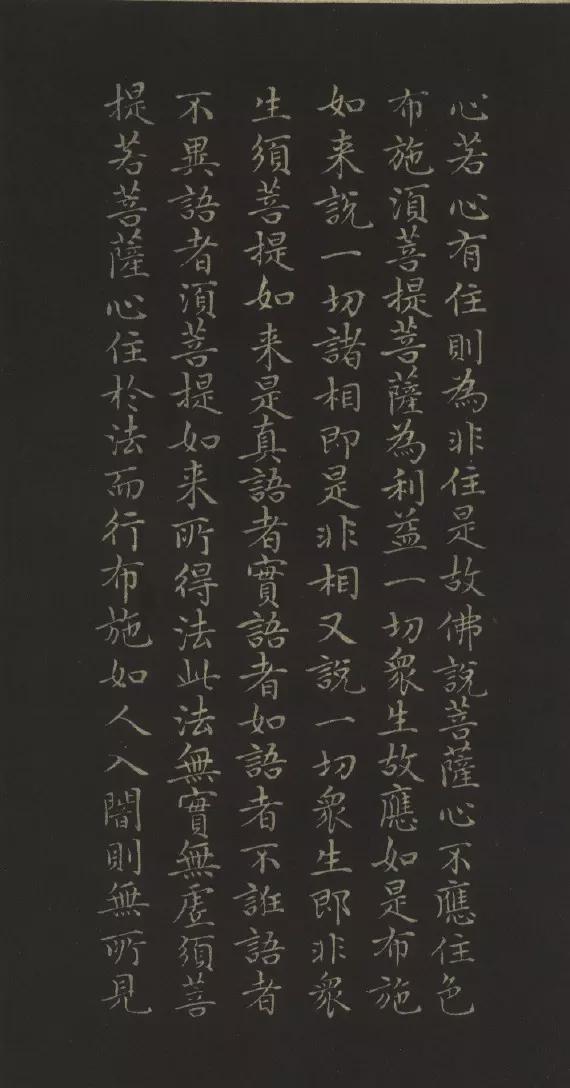 心若心有住則為非住是故佛說菩薩心不應住色
布施須菩提菩薩為利益一切衆生故應如是布施
如来說一切諸相即是非相又說一切衆生即非衆
生須菩提如来是真語者實語者如語者不誑語者
不異語者須菩提如来所得法此法無實無虛須菩
提若菩薩心住於法而行布施如人入闇則無所見